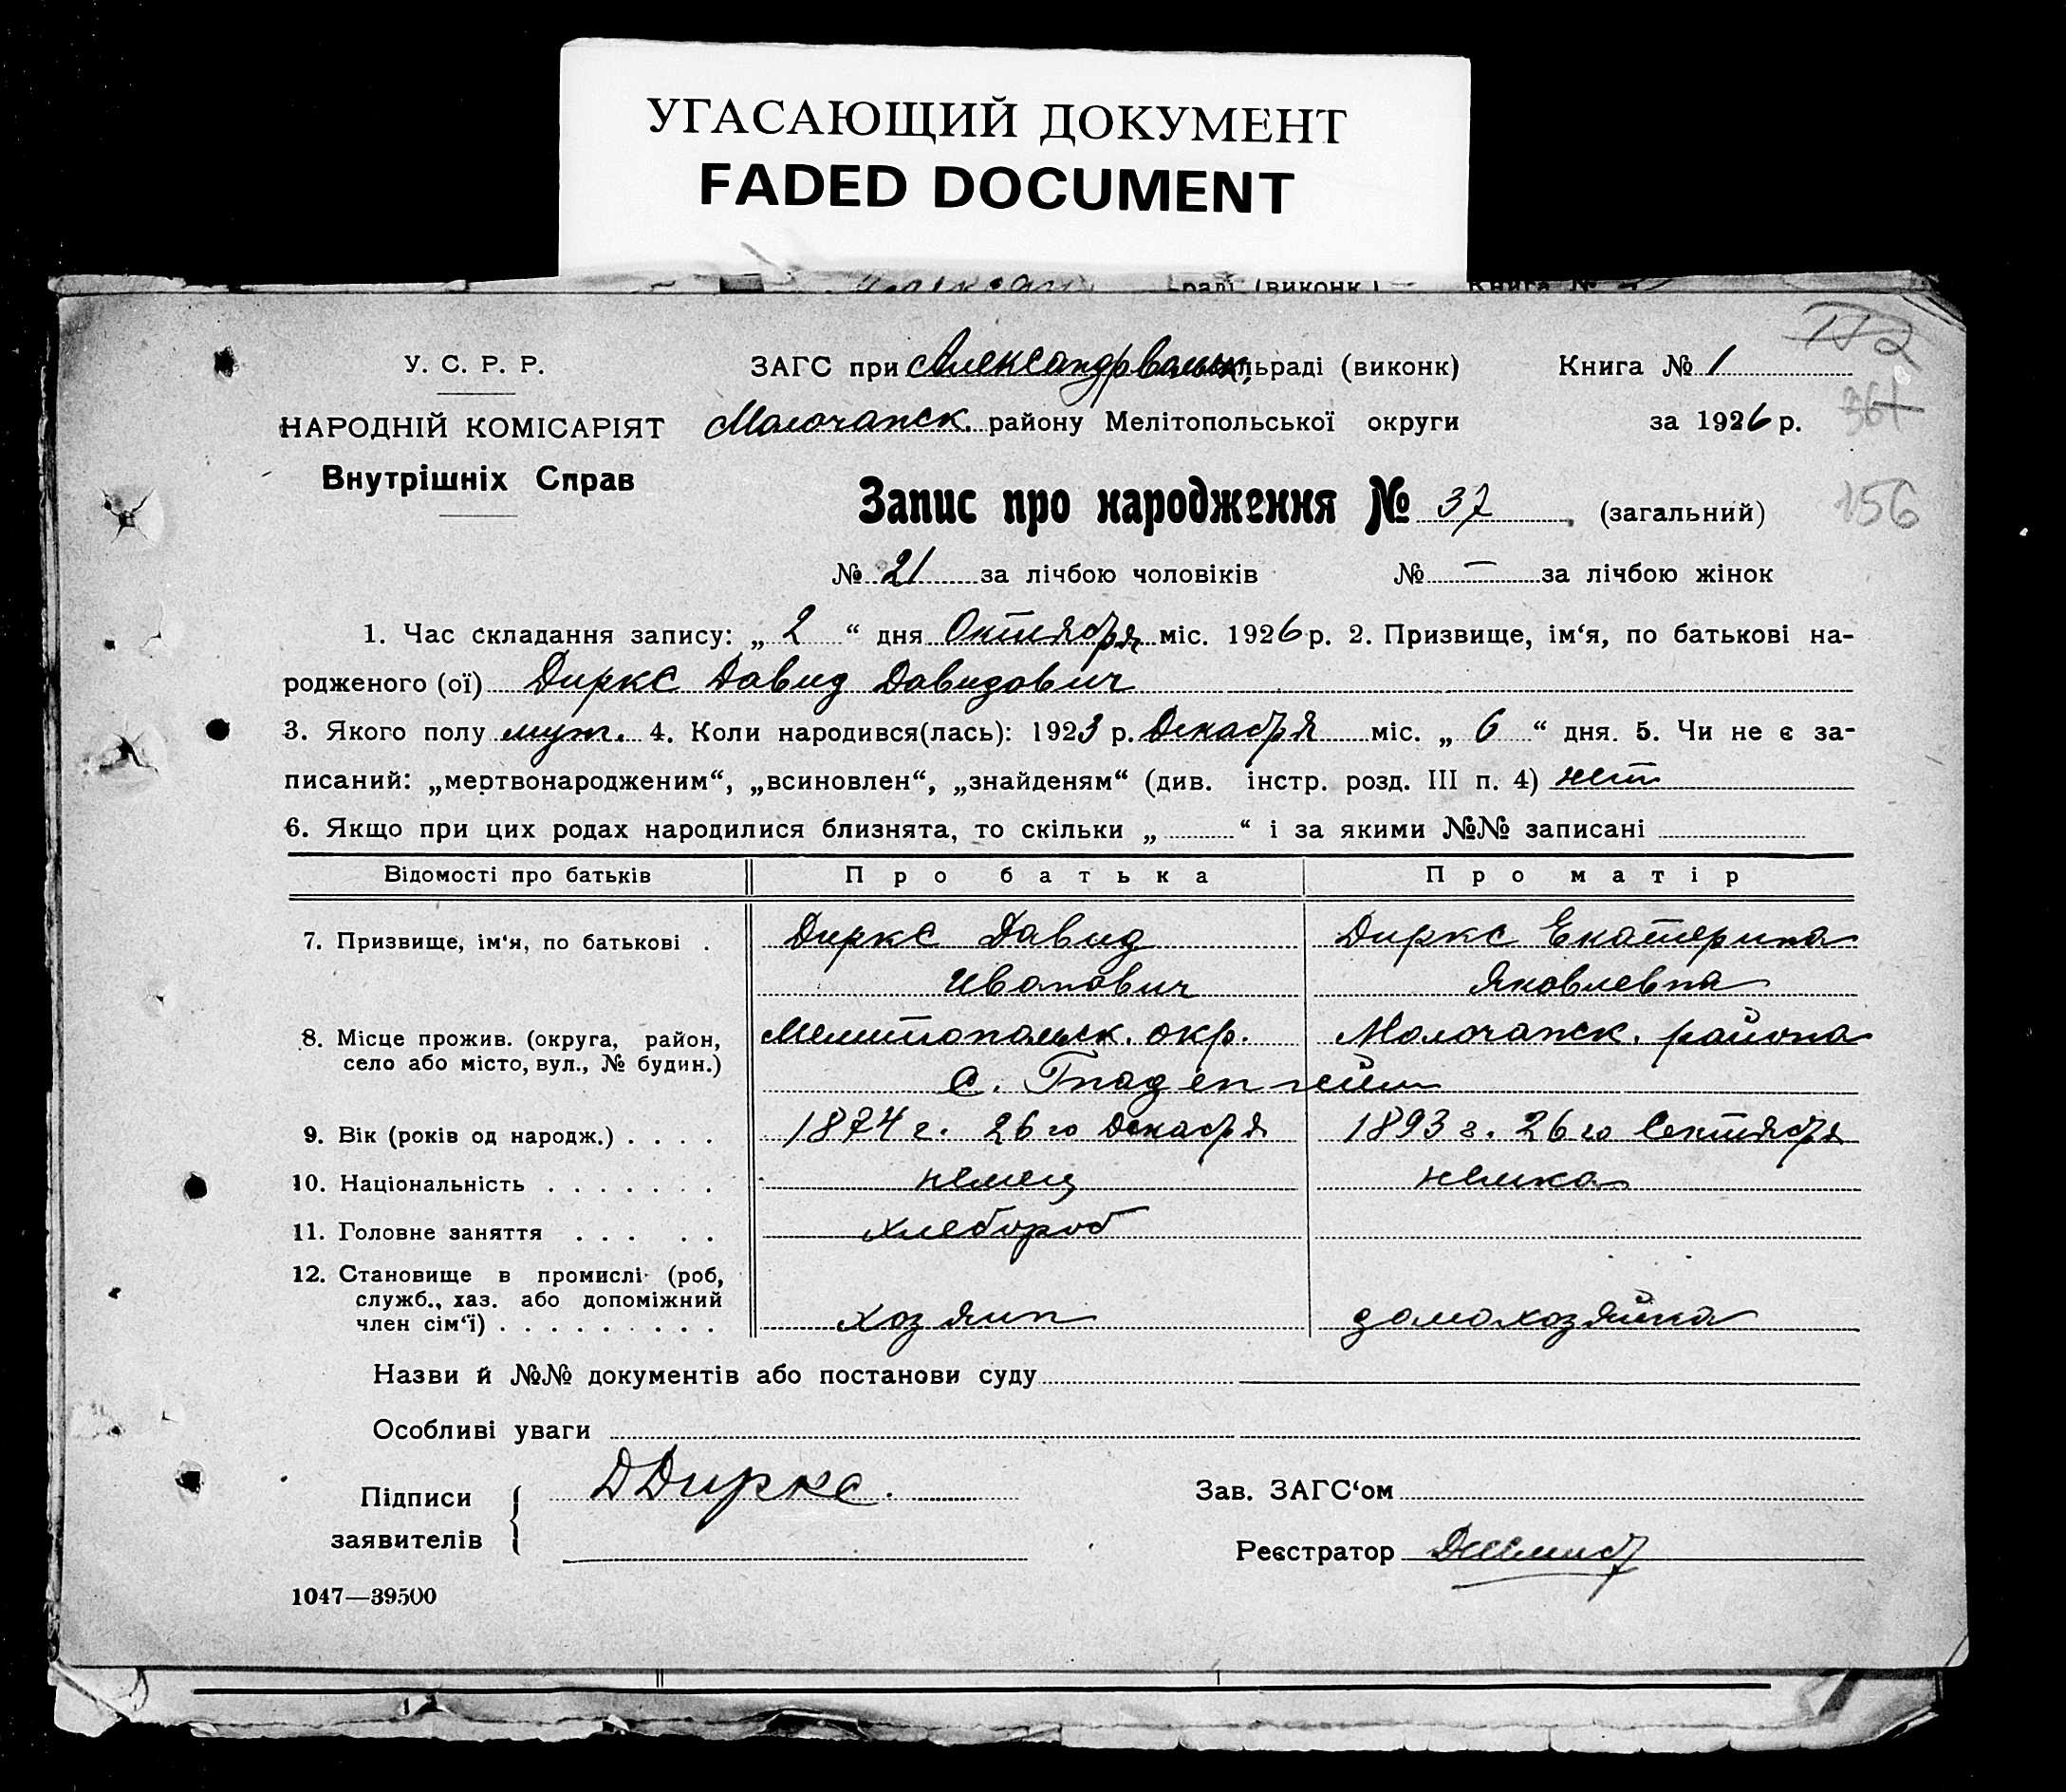 УГАСАЮЩИЙ ДОКУМЕНТ
FADED DOCUMENT
раді (виконк.) Книга №
У. С. Р. Р.
НАРОДНІЙ КОМІСАРІЯТ
Внутрішніх Справ
ЗАГС при Александрвольск. льраді (виконк)
Молочанск. району Мелітопольської округи
Книга № 1
за 1926 р.
156
Запис про народження № 37 (загальний)
№ 21 за лічбою чоловіків № — за лічбою жінок
1. Час складання запису: „ 2 “ дня Октября міс. 1926 р. 2. Призвище, ім‘я, по батькові на-
родженого (ої) Диркс Давид Давидович
3. Якого полу муж. 4. Коли народився(лась): 1923 р. Декабря міс. „ 6 “ дня. 5. Чи не є за-
писаний: „мертвонародженим“, „всиновлен“, „знайденям“ (див. інстр. розд. III п. 4) нет
6. Якщо при цих родах народилися близнята, то скільки „ “ і за якими №№ записані
Відомості про батьків Про батька Про матір
7. Призвище, ім‘я, по батькові . Диркс Давид Диркс Екатерина
Иванович Яковлевна
8. Місце прожив. (округа, район, Мелитопольск. окр. Молочанск. района
село або місто, вул., № будин.) с. Гнаденгейм
9. Вік (років од народж.) . . . . 1874 г. 26 го Декабря 1893 г. 26 го Сентября
10. Національність . . . . . . . немец немка
11. Головне заняття . . . . . хлебороб
12. Становище в промислі (роб,
служб., хаз. або допоміжний
член сім‘ї) . . . . . . . . . хозяин домохозяйка
Назви й №№ документів або постанови суду
Особливі уваги
Підписи
заявителів
ДДиркс.
Зав. ЗАГС‘ом
Реєстратор
1047—39500